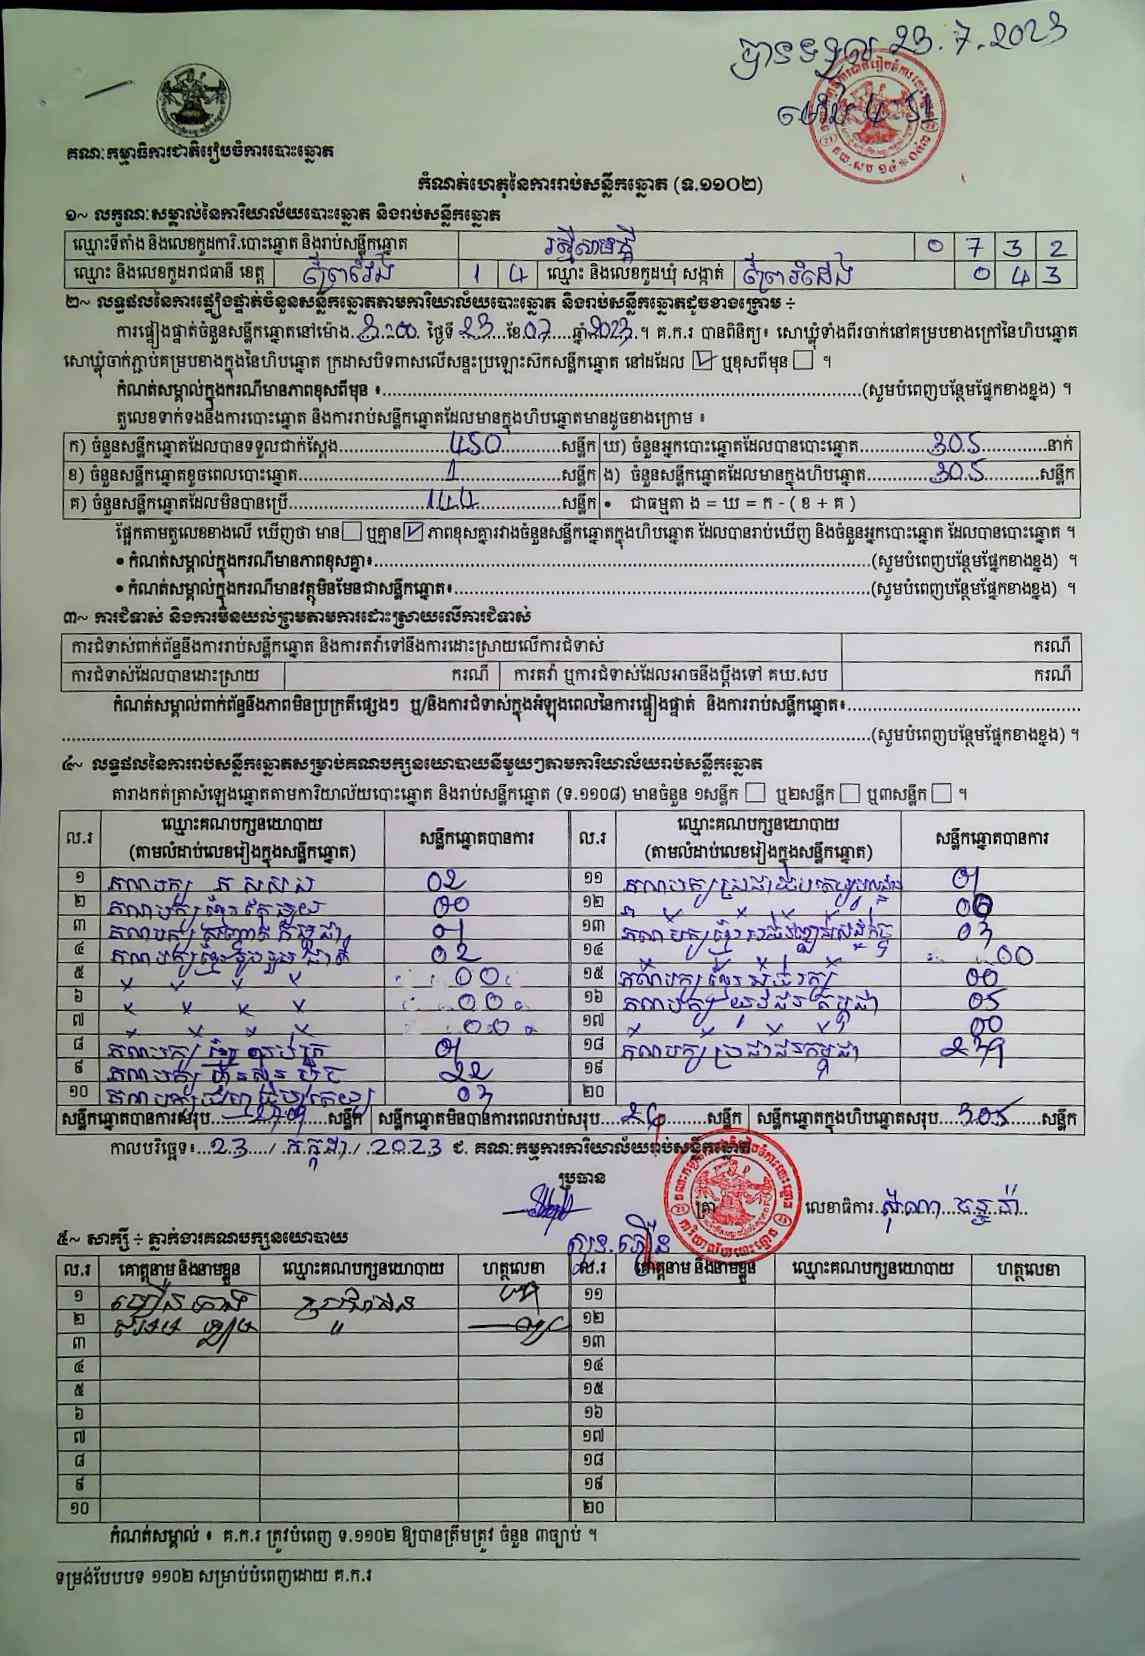 បានទទួល 23.7.2023
គណៈកម្មាធិការជាតិរៀបចំការបោះឆ្នោត
កំណត់ហេតុនៃការរាប់សន្លឹកឆ្នោត (ទ.១១០២)
១~ លក្ខណៈសម្គាល់នៃការិយាល័យបោះឆ្នោត និងរាប់សន្លឹកឆ្នោត
ឈ្មោះទីតាំង និងលេខកូដការិ.បោះឆ្នោត និងរាប់សន្លឹកឆ្នោត 0 7 3 2
ឈ្មោះ និងលេខកូដរាជធានី ខេត្ត ព្រៃវែង 1 4 ឈ្មោះ និងលេខកូដឃុំ សង្កាត់ 0 4 3
២~ លទ្ធផលនៃការផ្ទៀងផ្ទាត់ចំនួនសន្លឹកឆ្នោតតាមការិយាល័យបោះឆ្នោត និងរាប់សន្លឹកឆ្នោតដូចខាងក្រោម ÷
ការផ្ទៀងផ្ទាត់ចំនួនសន្លឹកឆ្នោតនៅម៉ោង..3:00. ថ្ងៃទី 23 ខែ.07....ឆ្នាំ 2023.។ គ.ក.រ បានពិនិត្យ៖ សោឃ្លុំទាំងពីរចាក់នៅគម្របខាងក្រៅនៃហិបឆ្នោត
សោឃ្លុំចាក់ភ្ជាប់គម្របខាងក្នុងនៃហិបឆ្នោត ក្រដាសបិទពាសលើសន្ទះប្រឡោះស៊កសន្លឹកឆ្នោត នៅដដែល ☑ ឬខុសពីមុន ☐ ។
កំណត់សម្គាល់ក្នុងករណីមានភាពខុសពីមុន ៖.....(សូមបំពេញបន្ថែមផ្នែកខាងខ្នង) ។
តួលេខទាក់ទងនឹងការបោះឆ្នោត និងការរាប់សន្លឹកឆ្នោតដែលមានក្នុងហិបឆ្នោតមានដូចខាងក្រោម ៖
ក) ចំនួនសន្លឹកឆ្នោតដែលបានទទួលជាក់ស្តែង.....450.....សន្លឹក ឃ) ចំនួនអ្នកបោះឆ្នោតដែលបានបោះឆ្នោត.....305.....នាក់
ខ) ចំនួនសន្លឹកឆ្នោតខូចពេលបោះឆ្នោត.....1.....សន្លឹក ង) ចំនួនសន្លឹកឆ្នោតដែលមានក្នុងហិបឆ្នោត.....305.....សន្លឹក
គ) ចំនួនសន្លឹកឆ្នោតដែលមិនបានប្រើ.....144.....សន្លឹក • ជាធម្មតា ង = ឃ = ក - ( ខ + គ )
ផ្អែកតាមតួលេខខាងលើ ឃើញថា មាន ☐ ឬគ្មាន ☑ ភាពខុសគ្នារវាងចំនួនសន្លឹកឆ្នោតក្នុងហិបឆ្នោត ដែលបានរាប់ឃើញ និងចំនួនអ្នកបោះឆ្នោត ដែលបានបោះឆ្នោត ។
• កំណត់សម្គាល់ក្នុងករណីមានភាពខុសគ្នា៖.....(សូមបំពេញបន្ថែមផ្នែកខាងខ្នង) ។
• កំណត់សម្គាល់ក្នុងករណីមានវត្ថុមិនមែនជាសន្លឹកឆ្នោត៖.....(សូមបំពេញបន្ថែមផ្នែកខាងខ្នង) ។
៣~ ការជំទាស់ និងការមិនយល់ព្រមតាមការដោះស្រាយលើការជំទាស់
ការជំទាស់ពាក់ព័ន្ធនឹងការរាប់សន្លឹកឆ្នោត និងការតវ៉ាទៅនឹងការដោះស្រាយលើការជំទាស់ ករណី
ការជំទាស់ដែលបានដោះស្រាយ ករណី ការតវ៉ា ឬការជំទាស់ដែលអាចនឹងប្តឹងទៅ គឃ.សប ករណី
កំណត់សម្គាល់ពាក់ព័ន្ធនឹងភាពមិនប្រក្រតីផ្សេងៗ ឬ/និងការជំទាស់ក្នុងអំឡុងពេលនៃការផ្ទៀងផ្ទាត់ និងការរាប់សន្លឹកឆ្នោត៖.....
.....(សូមបំពេញបន្ថែមផ្នែកខាងខ្នង) ។
៤~ លទ្ធផលនៃការរាប់សន្លឹកឆ្នោតសម្រាប់គណបក្សនយោបាយនីមួយៗតាមការិយាល័យរាប់សន្លឹកឆ្នោត
តារាងកត់ត្រាសំឡេងឆ្នោតតាមការិយាល័យបោះឆ្នោត និងរាប់សន្លឹកឆ្នោត (ទ.១១០៨) មានចំនួន ១សន្លឹក ☐ ឬ២សន្លឹក ☐ ឬ៣សន្លឹក ☐ ។
ល.រ ឈ្មោះគណបក្សនយោបាយ (តាមលំដាប់លេខរៀងក្នុងសន្លឹកឆ្នោត) សន្លឹកឆ្នោតបានការ ល.រ ឈ្មោះគណបក្សនយោបាយ (តាមលំដាប់លេខរៀងក្នុងសន្លឹកឆ្នោត) សន្លឹកឆ្នោតបានការ
១ គណបក្ស 02 ១១ គណបក្ស
២ គណបក្ស 00 ១២
៣ គណបក្ស កម្ពុជា ១៣ គណបក្ស 03
៤ គណបក្សខ្មែររួបរួមជាតិ 02 ១៤ 00
៥ 00 ១៥ គណបក្ស 00
៦ 00 ១៦ គណបក្ស យុវជន កម្ពុជា 05
៧ 00 ១៧ 00
៨ គណបក្ស ១៨ គណបក្ស ប្រជាជនកម្ពុជា
៩ គណបក្ស ហ៊្វុនស៊ិនប៉ិច 22 ១៩
១០ គណបក្ស 03 ២០
សន្លឹកឆ្នោតបានការសរុប.....សន្លឹក សន្លឹកឆ្នោតមិនបានការពេលរាប់សរុប.....សន្លឹក សន្លឹកឆ្នោតក្នុងហិបឆ្នោតសរុប..305.....សន្លឹក
កាលបរិច្ឆេទ៖...23..../.កក្កដា./.2023 ជ. គណៈកម្មការការិយាល័យរាប់សន្លឹកឆ្នោត
ប្រធាន
លេខាធិការ
៥~ សាក្សី ÷ ភ្នាក់ងារគណបក្សនយោបាយ
ល.រ គោត្តនាម និងនាមខ្លួន ឈ្មោះគណបក្សនយោបាយ ហត្ថលេខា ល.រ គោត្តនាម និងនាមខ្លួន ឈ្មោះគណបក្សនយោបាយ ហត្ថលេខា
១ ១១
២ " ១២
៣ ១៣
៤ ១៤
៥ ១៥
៦ ១៦
៧ ១៧
៨ ១៨
៩ ១៩
១០ ២០
កំណត់សម្គាល់ ៖ គ.ក.រ ត្រូវបំពេញ ទ.១១០២ ឱ្យបានត្រឹមត្រូវ ចំនួន ៣ច្បាប់ ។
ទម្រង់បែបបទ ១១០២ សម្រាប់បំពេញដោយ គ.ក.រ